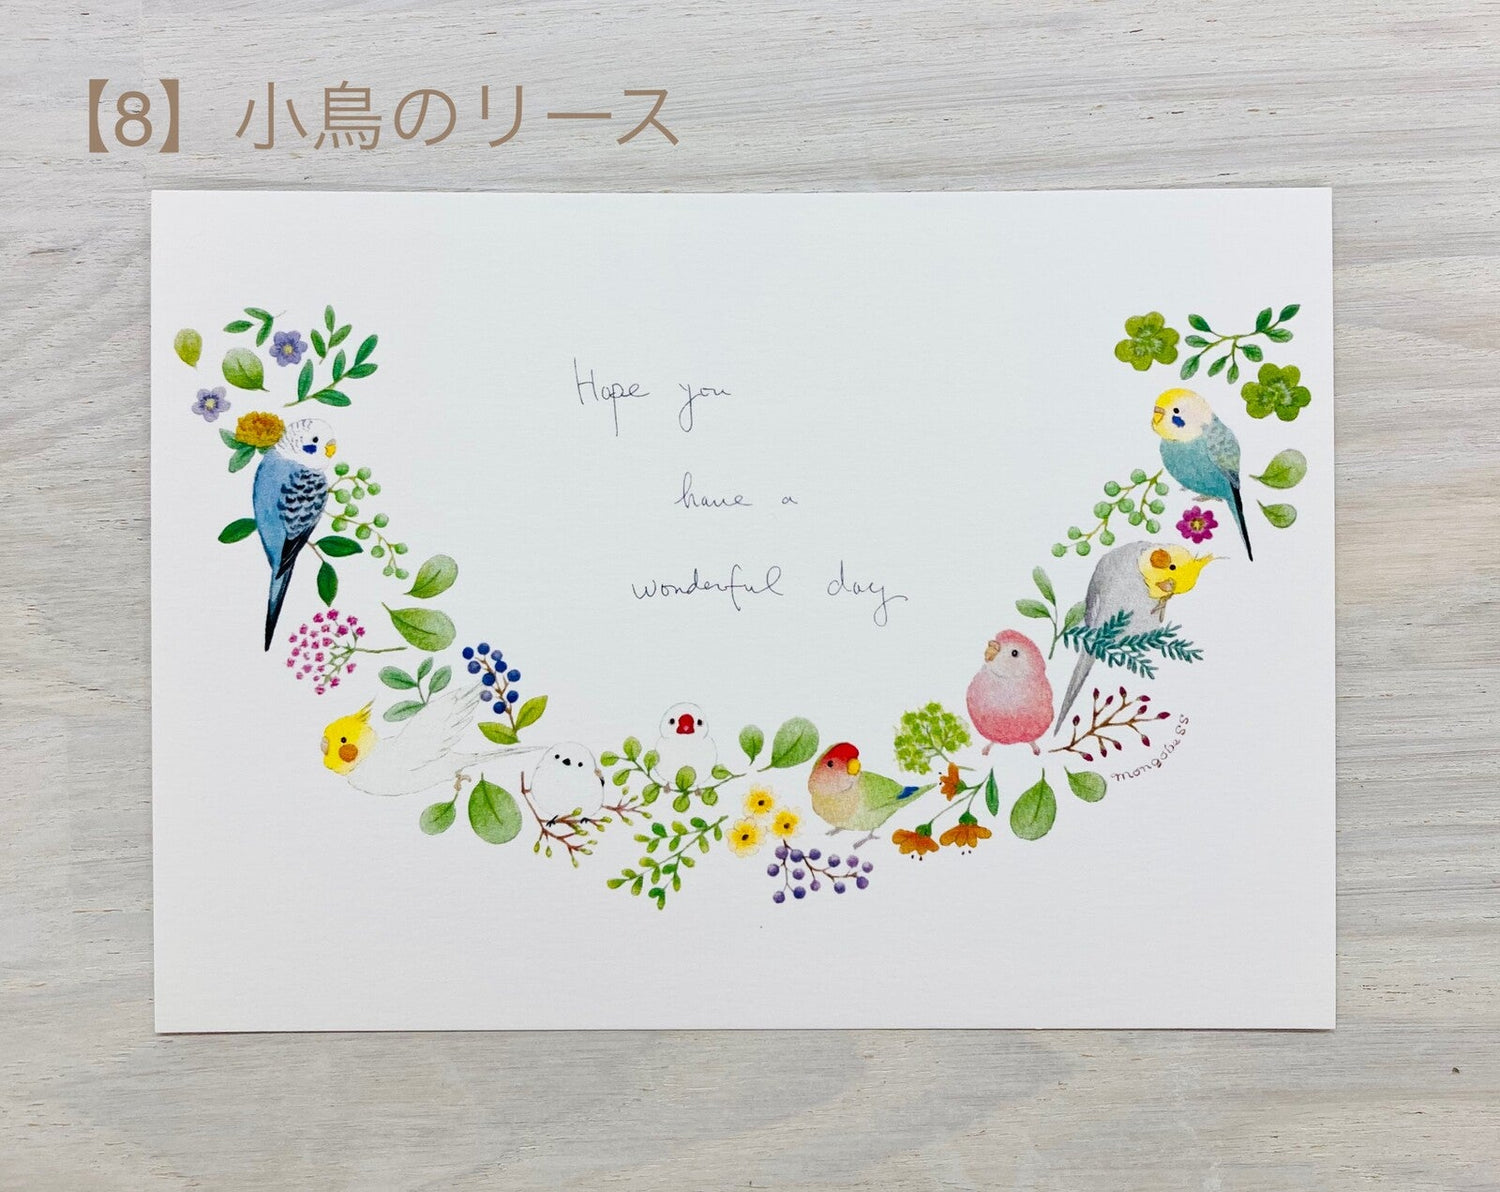 【8】小鳥のリース
Hope you
have a
wonderful day